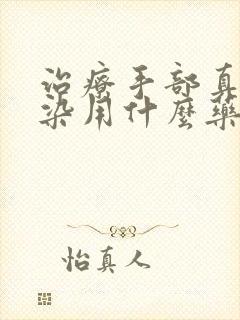 治療手部真
染用什麼藥
怡真人